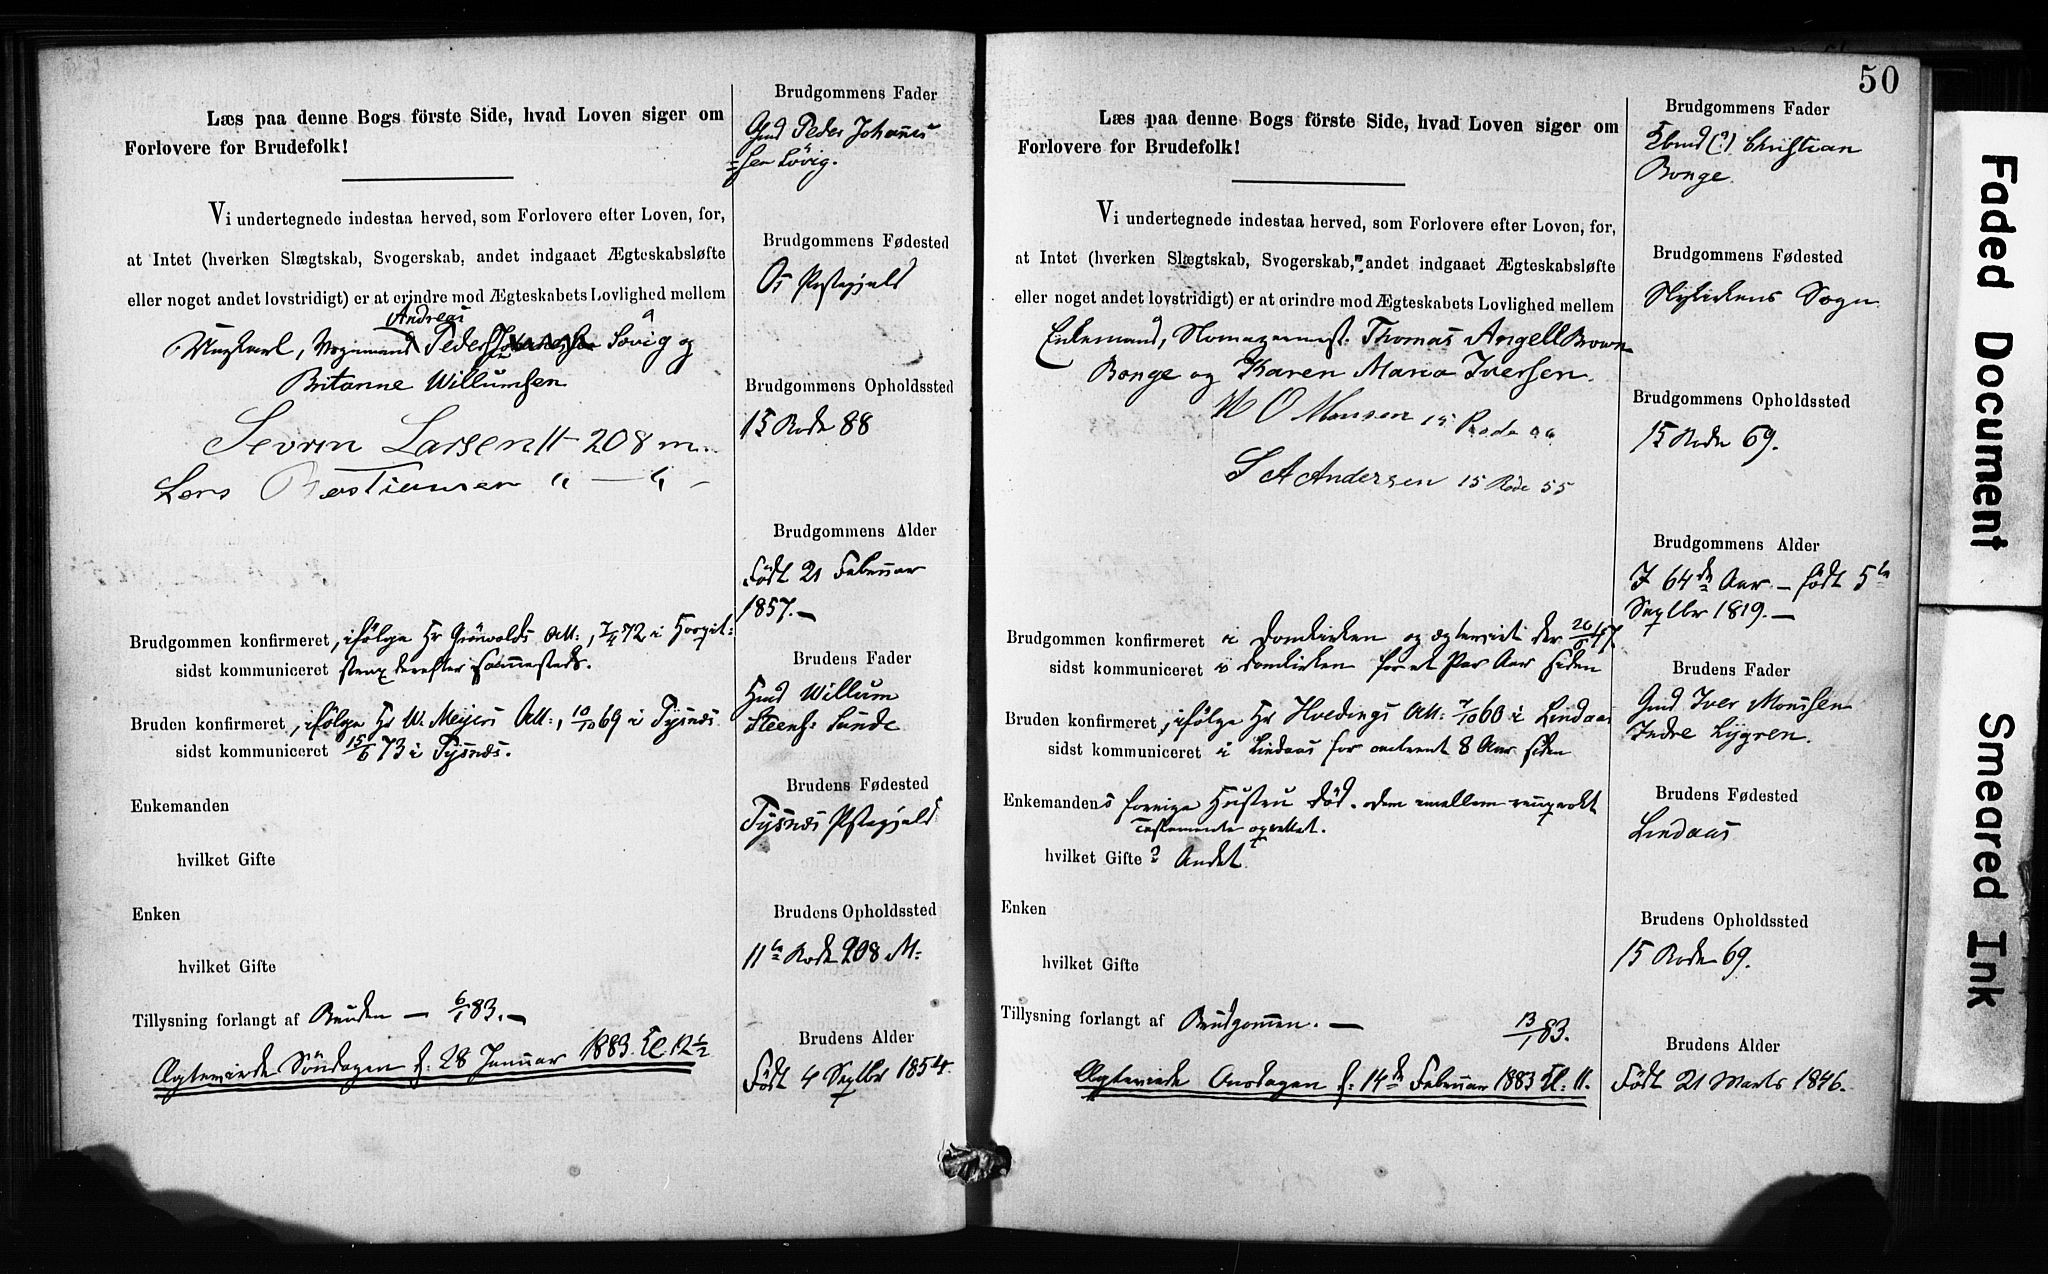 Læs paa denne Bogs förste Side, hvad Loven siger om
Forlovere for Brudefolk!
Vi undertegnede indestaa herved, som Forlovere efter Loven, for,
at Intet (hverken Slægtskab, Svogerskab, andet indgaaet Ægteskabsløfte
eller noget andet lovstridigt) er at erindre mod Ægteskabets Lovlighed mellem
Andreas
Ungkarl, Vognmand Peder Lövig og
Britanne Willumsen
Sevrin Larsen 11 - 208 m
Lars
Brudgommen konfirmeret, ifölge Hr Grönvolds Att:, 7/4 72 i Hospit:
sidst kommuniceret strax derefter sammesteds.
Bruden konfirmeret, ifölge Hr W. Meyers Att:, 10/10 69 i Tysnæs
sidst kommuniceret 15/6 73 i Tysnæs.
Enkemanden
hvilket Gifte
Enken
hvilket Gifte
Tillysning forlangt af Bruden — 6/1 83. —
Ægteviede Söndagen d: 28 Januar 1883 Kl 12 1/2
Brudgommens Fader
Gmd Peder Johannes
=sen Lövig.
Brudgommens Fødested
Os Pstegjeld
Brudgommens Opholdssted
15 Rode 88
Brudgommens Alder
Födt 21 Februar
1857. —
Brudens Fader
Hmd Willum
Steens: Sunde
Brudens Fødested
Tysnæs Pstegjeld
Brudens Opholdssted
11te Rode 208 M:
Brudens Alder
Födt 4 Septbr 1854.
50
Læs paa denne Bogs förste Side, hvad Loven siger om
Forlovere for Brudefolk!
Vi undertegnede indestaa herved, som Forlovere efter Loven, for,
at Intet (hverken Slægtskab, Svogerskab, andet indgaaet Ægteskabsløfte
eller noget andet lovstridigt) er at erindre mod Ægteskabets Lovlighed mellem
Enkemand, Thomas Angell Brown
Bonge og Karen Maria Iversen.
M O Monsen 15 Rode
S A Andersen 15 Rode 55
Brudgommen konfirmeret i Domkirken og ægteviet der 20/5 47.
sidst kommuniceret i Domkirken for et Par Aar siden
Bruden konfirmeret, ifölge Hr Hvedings Att: 7/10 60 i Lindaas
sidst kommuniceret i Lindaas for omtrent 8 Aar siden
Enkemandens forrige Hustru död. Dem imellem reciprokt
Testamente oprettet.
hvilket Gifte? Andet
Enken
hvilket Gifte
Tillysning forlangt af Brudgommen. — 13/1 83.
Ægteviede Onsdagen d: 14de Februar 1883 Kl: 11.
Brudgommens Fader
(?) Christian
Bonge.
Brudgommens Fødested
Nykirkens Sogn
Brudgommens Opholdssted
15 Rode 69.
Brudgommens Alder
I 64de Aar. — födt 5te
Septbr 1819. —
Brudens Fader
Gmd Iver Monssen
Indre Lygren.
Brudens Fødested
Lindaas
Brudens Opholdssted
15 Rode 69.
Brudens Alder
Födt 21 Marts 1846.
Faded Document
Smeared Ink